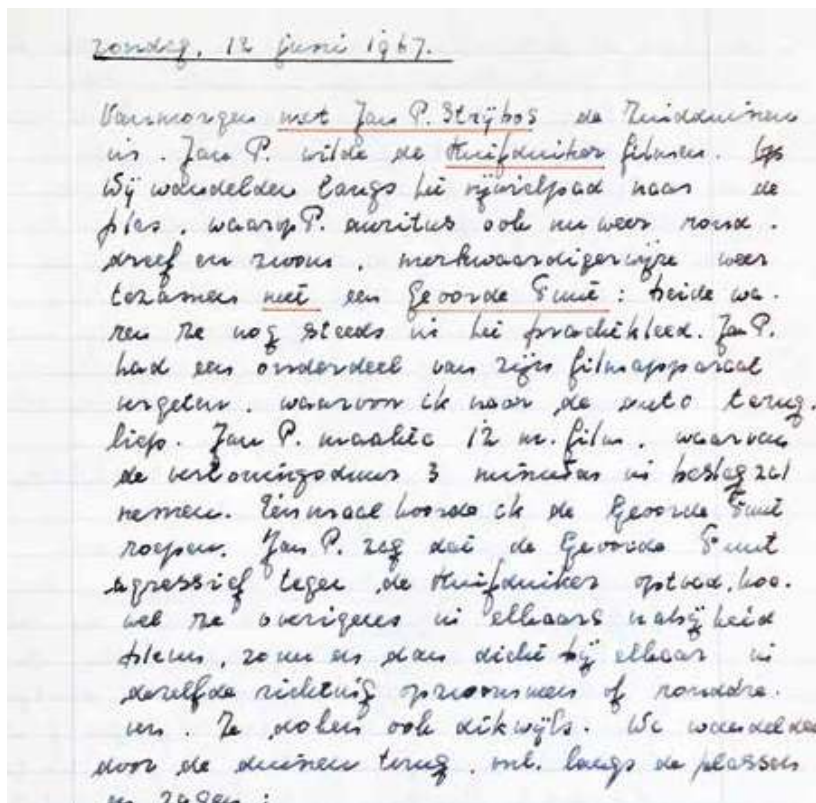 zondag, 12 juni 1967.
Vanmorgen met Jan P. Strijbos de Zuidduinen
in. Jan P. wilde de Kuifduiker filmen.
Wij wandelden langs het rijwielpad naar de
plas, waarop P. auritus ook nu weer rond-
dreef en zwom, merkwaardigerwijze weer
tezamen met een Geoorde Fuut: beide wa-
ren ze nog steeds in het prachtkleed. Jan P.
had een onderdeel van zijn filmapparaat
vergeten, waarvoor ik naar de auto terug-
liep. Jan P. maakte 12 m. film, waarvan
de vertoningsduur 3 minuten in beslag zal
nemen. Eenmaal hoorde ik de Geoorde Fuut
roepen. Jan P. zag dat de Geoorde Fuut
agressief tegen de Kuifduiker optrad, hoe-
wel ze overigens in elkaars nabijheid
bleven, zo nu en dan dicht bij elkaar in
dezelfde richting opzwommen of ronddre-
ven. Ze doken ook dikwijls. We wandelden
door de duinen terug, langs de plassen
en zagen: